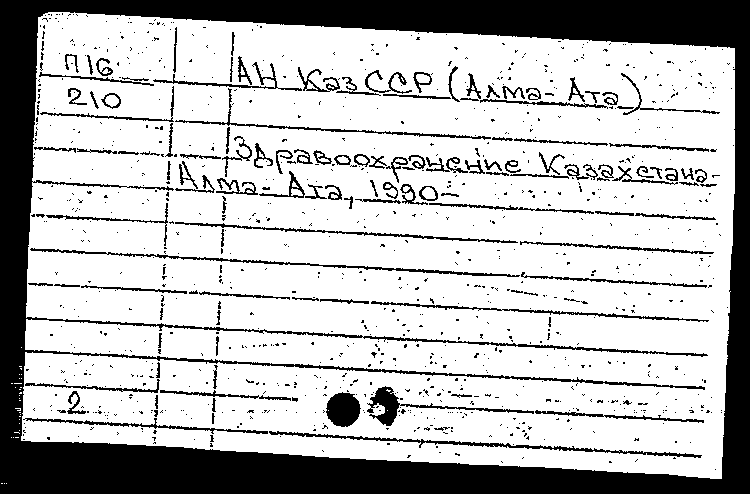 П16 АН КазССР (Алма-Ата)
210
Здравоохранение Казахстана-
Алма-Ата, 1990-